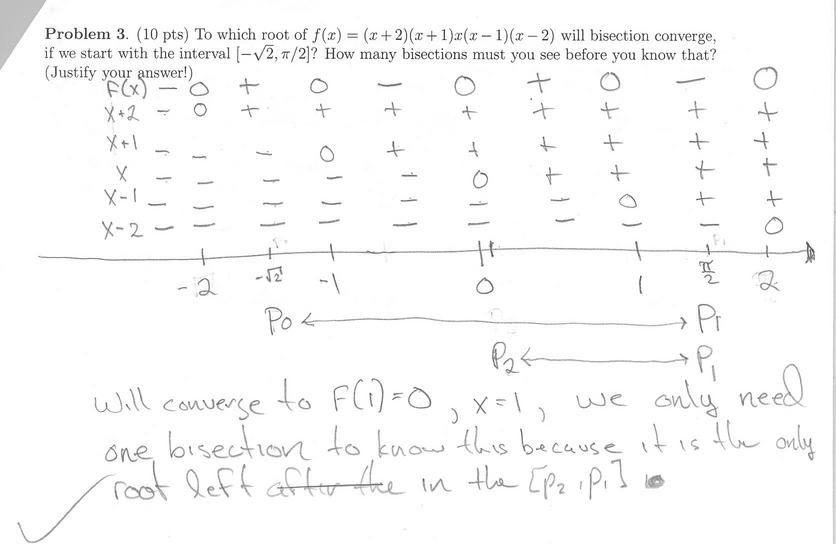 Problem 3. (10 pts) To which root of f(x) = (x + 2)(x + 1)x(x − 1)(x − 2) will bisection converge,
if we start with the interval [−√2, π/2]? How many bisections must you see before you know that?
(Justify your answer!)
F(x) − 0 + 0 − 0 + 0 − 0
x+2 − 0 + + + + + + + +
x+1 − − − 0 + + + + + +
x − − − − − 0 + + + +
x-1 − − − − − − − 0 + +
x-2 − − − − − − − − − 0
-2 -√2 -1 0 1 π/2 2
P0 P1
P2 P1
Will converge to F(1)=0, x=1, we only need
one bisection to know this because it is the only
root left after the in the [P2, P1]